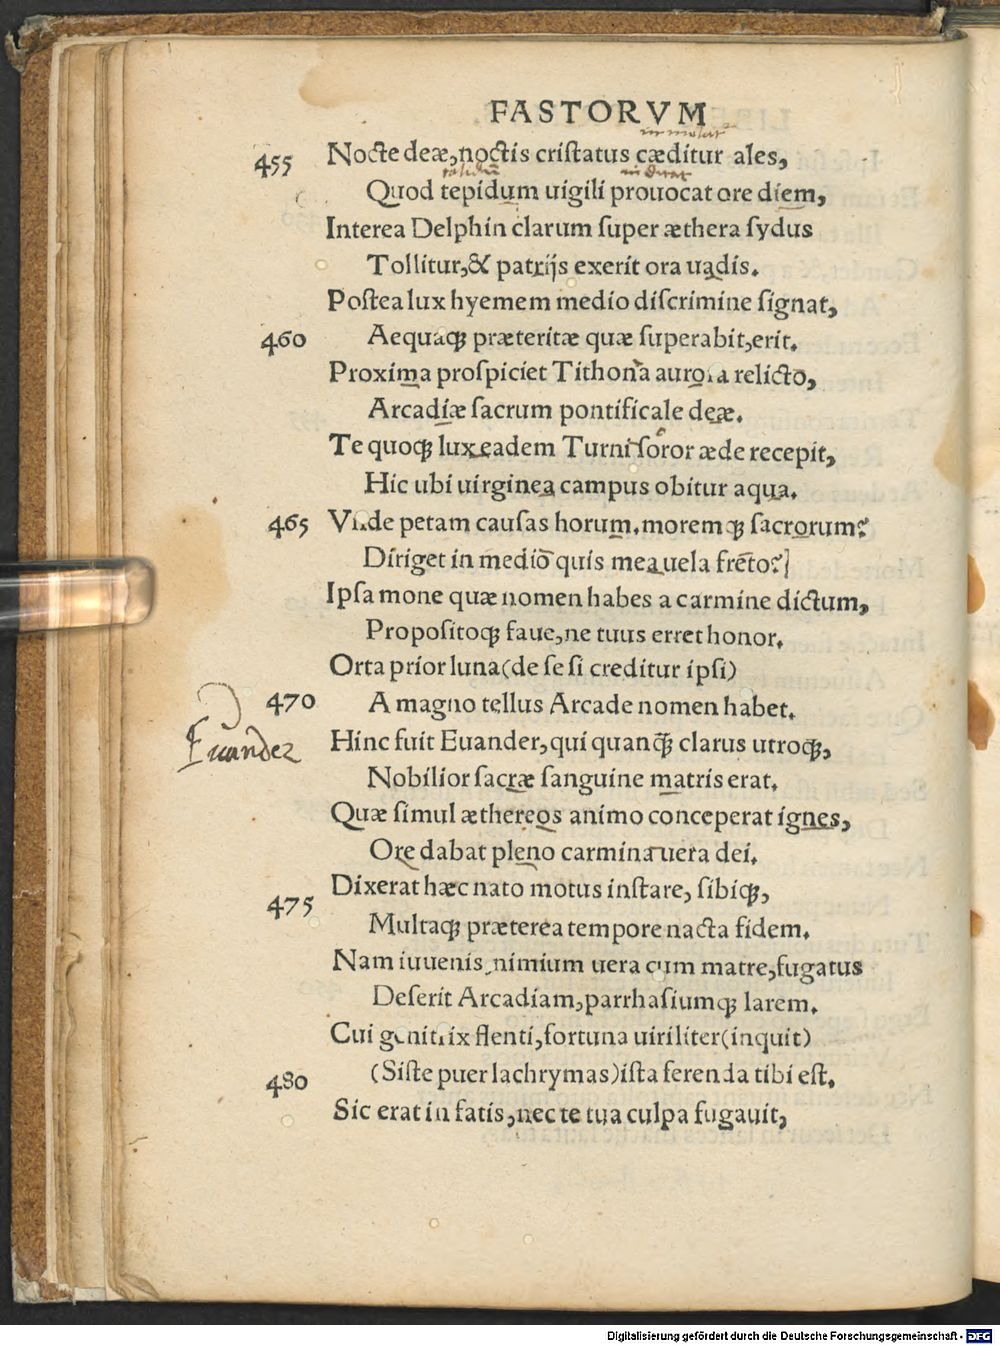 FASTORVM
immolat
455 Nocte deæ, noctis cristatus cæditur ales,
calidũ
Quod tepidum uigili prouocat ore diem,
Interea Delphin clarum super æthera sydus
Tollitur, & patrijs exerit ora uadis.
Postea lux hyemem medio discrimine signat,
460 Aequaqꝫ præteritæ quæ superabit, erit.
Proxima prospiciet Tithona aurora relicto,
Arcadiæ sacrum pontificale deæ.
Te quoqꝫ lux eadem Turni soror æde recepit,
Hic ubi uirginea campus obitur aqua.
465 Vnde petam causas horum, moremqꝫ sacrorum?
Diriget in mediõ quis mea uela frẽto?]
Ipsa mone quæ nomen habes a carmine dictum,
Propositoqꝫ faue, ne tuus erret honor.
Orta prior luna (de se si creditur ipsi)
470 A magno tellus Arcade nomen habet.
Euander
Hinc fuit Euander, qui quanqꝫ̃ clarus utroqꝫ,
Nobilior sacræ sanguine matris erat.
Quæ simul æthereos animo conceperat ignes,
Ore dabat pleno carmina uera dei.
Dixerat hæc nato motus instare, sibiqꝫ,
475 Multaqꝫ præterea tempore nacta fidem.
Nam iuuenis nimium uera cum matre, fugatus
Deserit Arcadiam, parrhasiumqꝫ larem.
Cui genitrix flenti, fortuna uiriliter (inquit)
480 (Siste puer lachrymas) ista ferenda tibi est.
Sic erat in fatis, nec te tua culpa fugauit,
Digitalisierung gefördert durch die Deutsche Forschungsgemeinschaft - DFG